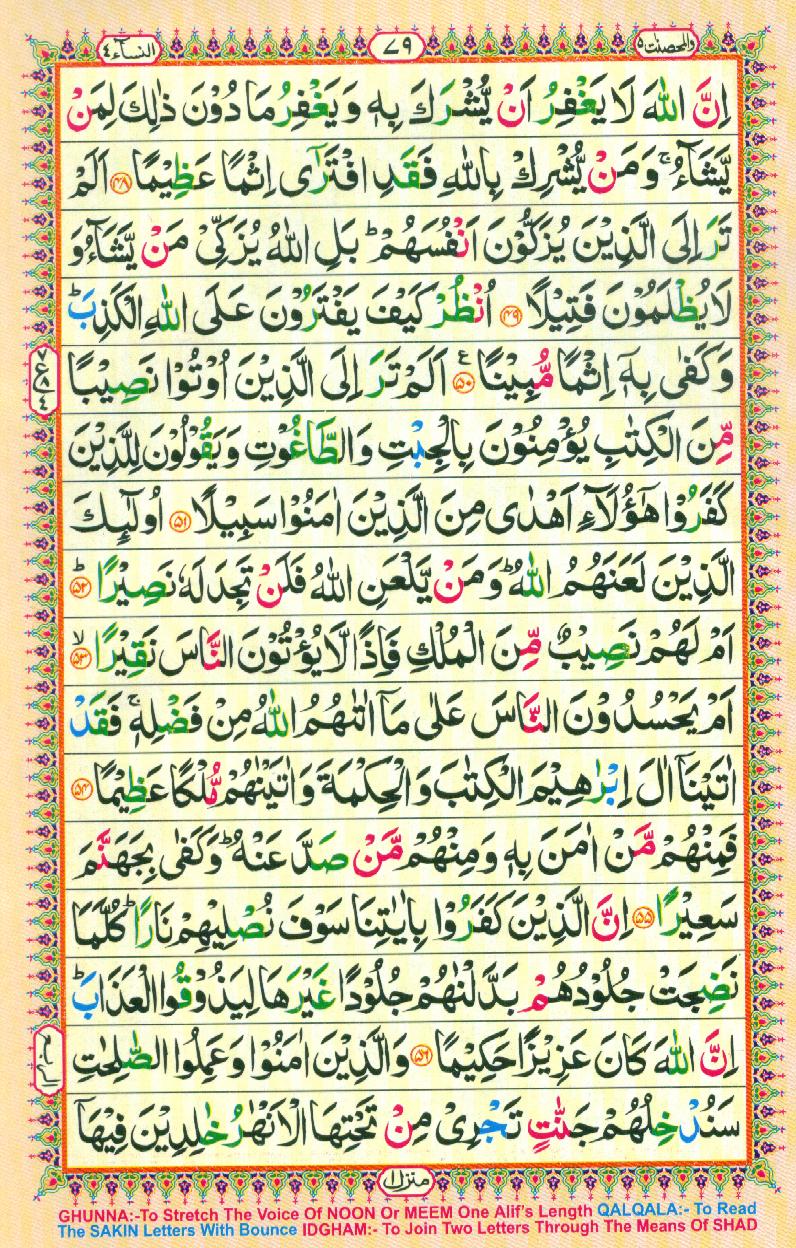 النسآء ٤
٧٩
والمحصنت ٥
اِنَّ اللّٰهَ لَا يَغْفِرُ اَنْ يُّشْرَكَ بِهٖ وَيَغْفِرُ مَا دُوْنَ ذٰلِكَ لِمَنْ
يَّشَآءُ ۚ وَمَنْ يُّشْرِكْ بِاللّٰهِ فَقَدِ افْتَرٰٓى اِثْمًا عَظِيْمًا ﴿۴۸﴾ اَلَمْ
تَرَ اِلَى الَّذِيْنَ يُزَكُّوْنَ اَنْفُسَهُمْ ؕ بَلِ اللّٰهُ يُزَكِّيْ مَنْ يَّشَآءُ وَ
لَا يُظْلَمُوْنَ فَتِيْلًا ﴿۴۹﴾ اُنْظُرْ كَيْفَ يَفْتَرُوْنَ عَلَى اللّٰهِ الْكَذِبَ ؕ
وَكَفٰى بِهٖٓ اِثْمًا مُّبِيْنًا ﴿۵۰﴾ ع اَلَمْ تَرَ اِلَى الَّذِيْنَ اُوْتُوْا نَصِيْبًا
٧
ع
٨
٤
مِّنَ الْكِتٰبِ يُؤْمِنُوْنَ بِالْجِبْتِ وَالطَّاغُوْتِ وَيَقُوْلُوْنَ لِلَّذِيْنَ
كَفَرُوْا هٰٓؤُلَآءِ اَهْدٰى مِنَ الَّذِيْنَ اٰمَنُوْا سَبِيْلًا ﴿۵۱﴾ اُولٰٓئِكَ
الَّذِيْنَ لَعَنَهُمُ اللّٰهُ ؕ وَمَنْ يَّلْعَنِ اللّٰهُ فَلَنْ تَجِدَ لَهٗ نَصِيْرًا ؕ ﴿۵۲﴾
اَمْ لَهُمْ نَصِيْبٌ مِّنَ الْمُلْكِ فَاِذًا لَّا يُؤْتُوْنَ النَّاسَ نَقِيْرًا ۙ ﴿۵۳﴾
اَمْ يَحْسُدُوْنَ النَّاسَ عَلٰى مَآ اٰتٰىهُمُ اللّٰهُ مِنْ فَضْلِهٖ ۚ فَقَدْ
اٰتَيْنَآ اٰلَ اِبْرٰهِيْمَ الْكِتٰبَ وَالْحِكْمَةَ وَاٰتَيْنٰهُمْ مُّلْكًا عَظِيْمًا ﴿۵۴﴾
فَمِنْهُمْ مَّنْ اٰمَنَ بِهٖ وَمِنْهُمْ مَّنْ صَدَّ عَنْهُ ؕ وَكَفٰى بِجَهَنَّمَ
سَعِيْرًا ﴿۵۵﴾ اِنَّ الَّذِيْنَ كَفَرُوْا بِاٰيٰتِنَا سَوْفَ نُصْلِيْهِمْ نَارًا ؕ كُلَّمَا
نَضِجَتْ جُلُوْدُهُمْ بَدَّلْنٰهُمْ جُلُوْدًا غَيْرَهَا لِيَذُوْقُوا الْعَذَابَ ؕ
اِنَّ اللّٰهَ كَانَ عَزِيْزًا حَكِيْمًا ﴿۵۶﴾ وَالَّذِيْنَ اٰمَنُوْا وَعَمِلُوا الصّٰلِحٰتِ
الربع
سَنُدْخِلُهُمْ جَنّٰتٍ تَجْرِيْ مِنْ تَحْتِهَا الْاَنْهٰرُ خٰلِدِيْنَ فِيْهَآ
منزل ١
GHUNNA:-To Stretch The Voice Of NOON Or MEEM One Alif's Length QALQALA:- To Read
The SAKIN Letters With Bounce IDGHAM:- To Join Two Letters Through The Means Of SHAD